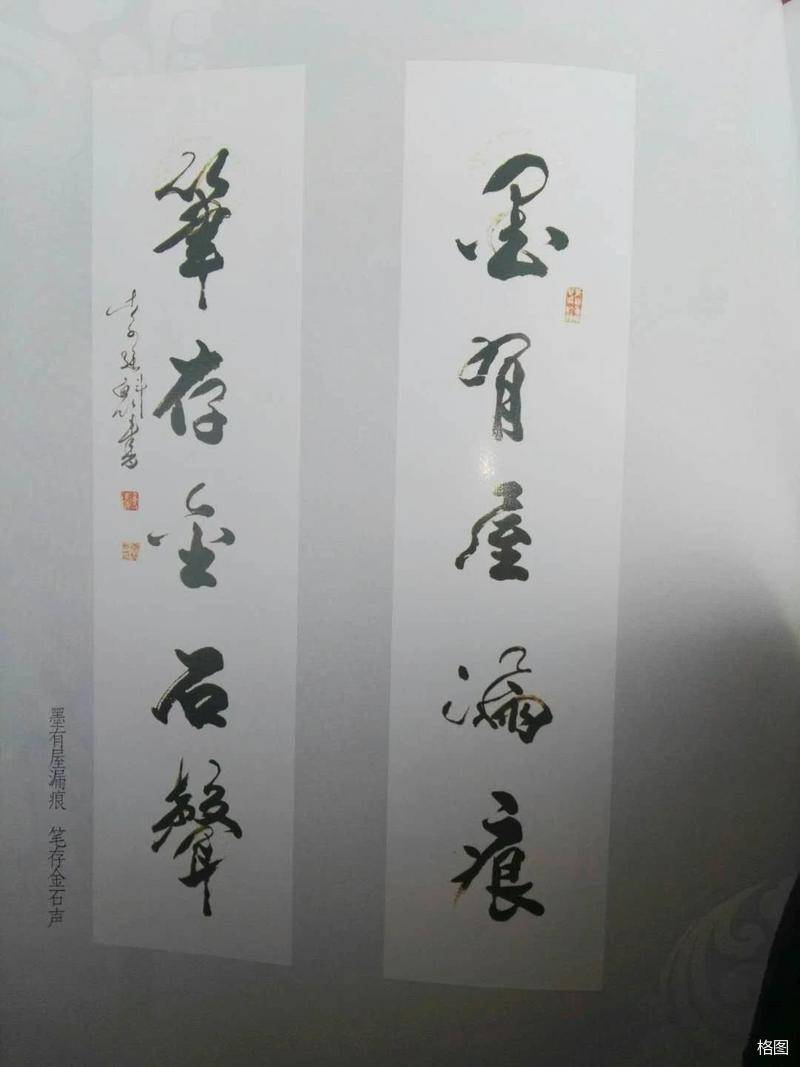 墨有屋漏痕
筆存金石聲
墨有屋漏痕 笔存金石声
格图